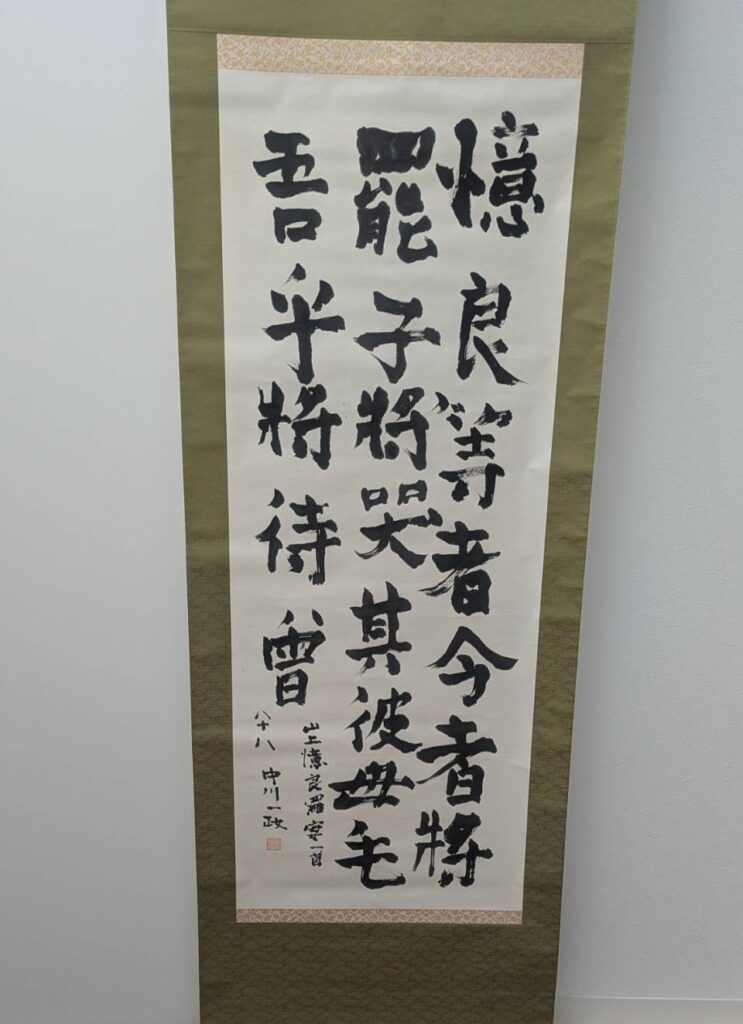 憶良等者今者將
罷子將哭其彼母毛
吾乎將待曾
山上憶良罷宴一首
八十八 中川一政